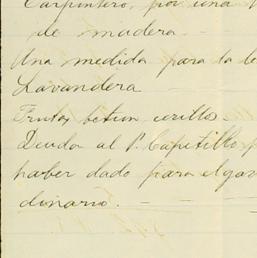 Carpintero, por una
de madera
Una medida para la le
Lavandera
Frutas betun cerillos
Deuda al P. Capetillo p
haber dado para el gas
dinario.